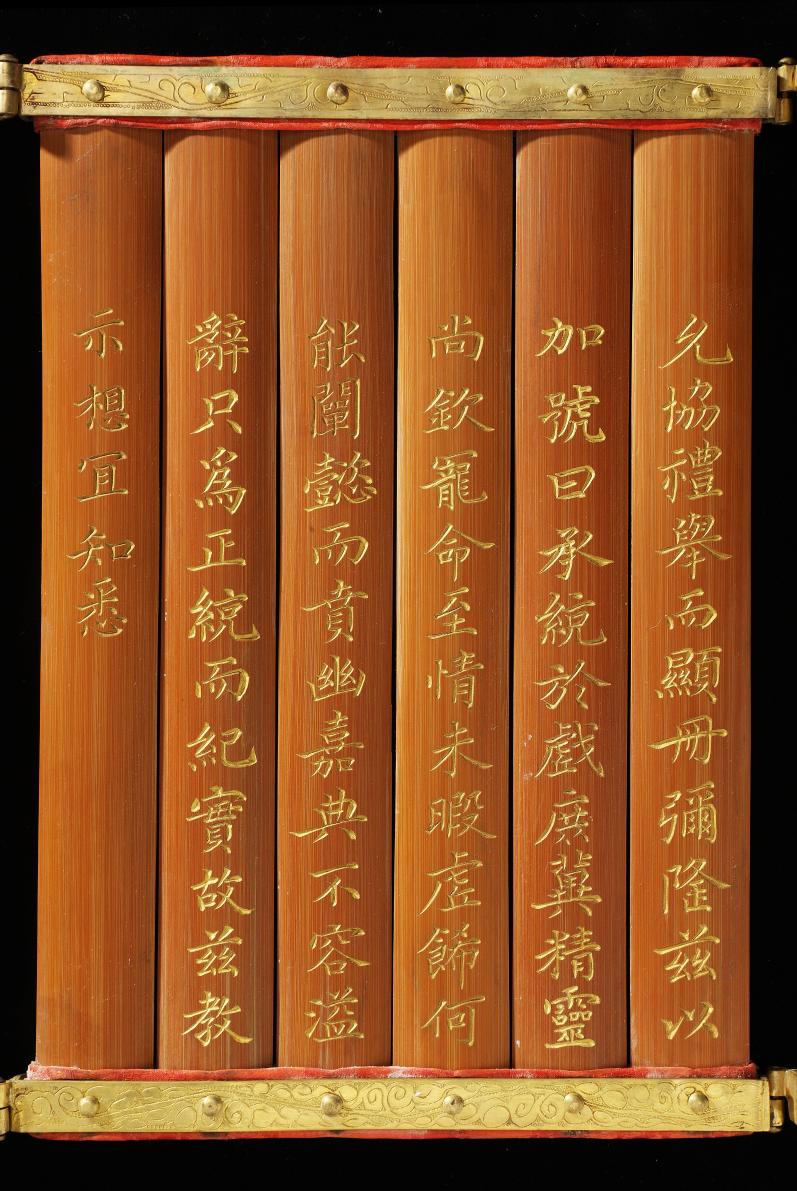 允協禮舉而顯冊彌隆茲以
加號曰承統於戲庶冀精靈
尚欽寵命至情未暇虛餙何
能闡懿而賁幽嘉典不容溢
辭只爲正統而紀實故茲教
示想冝知悉